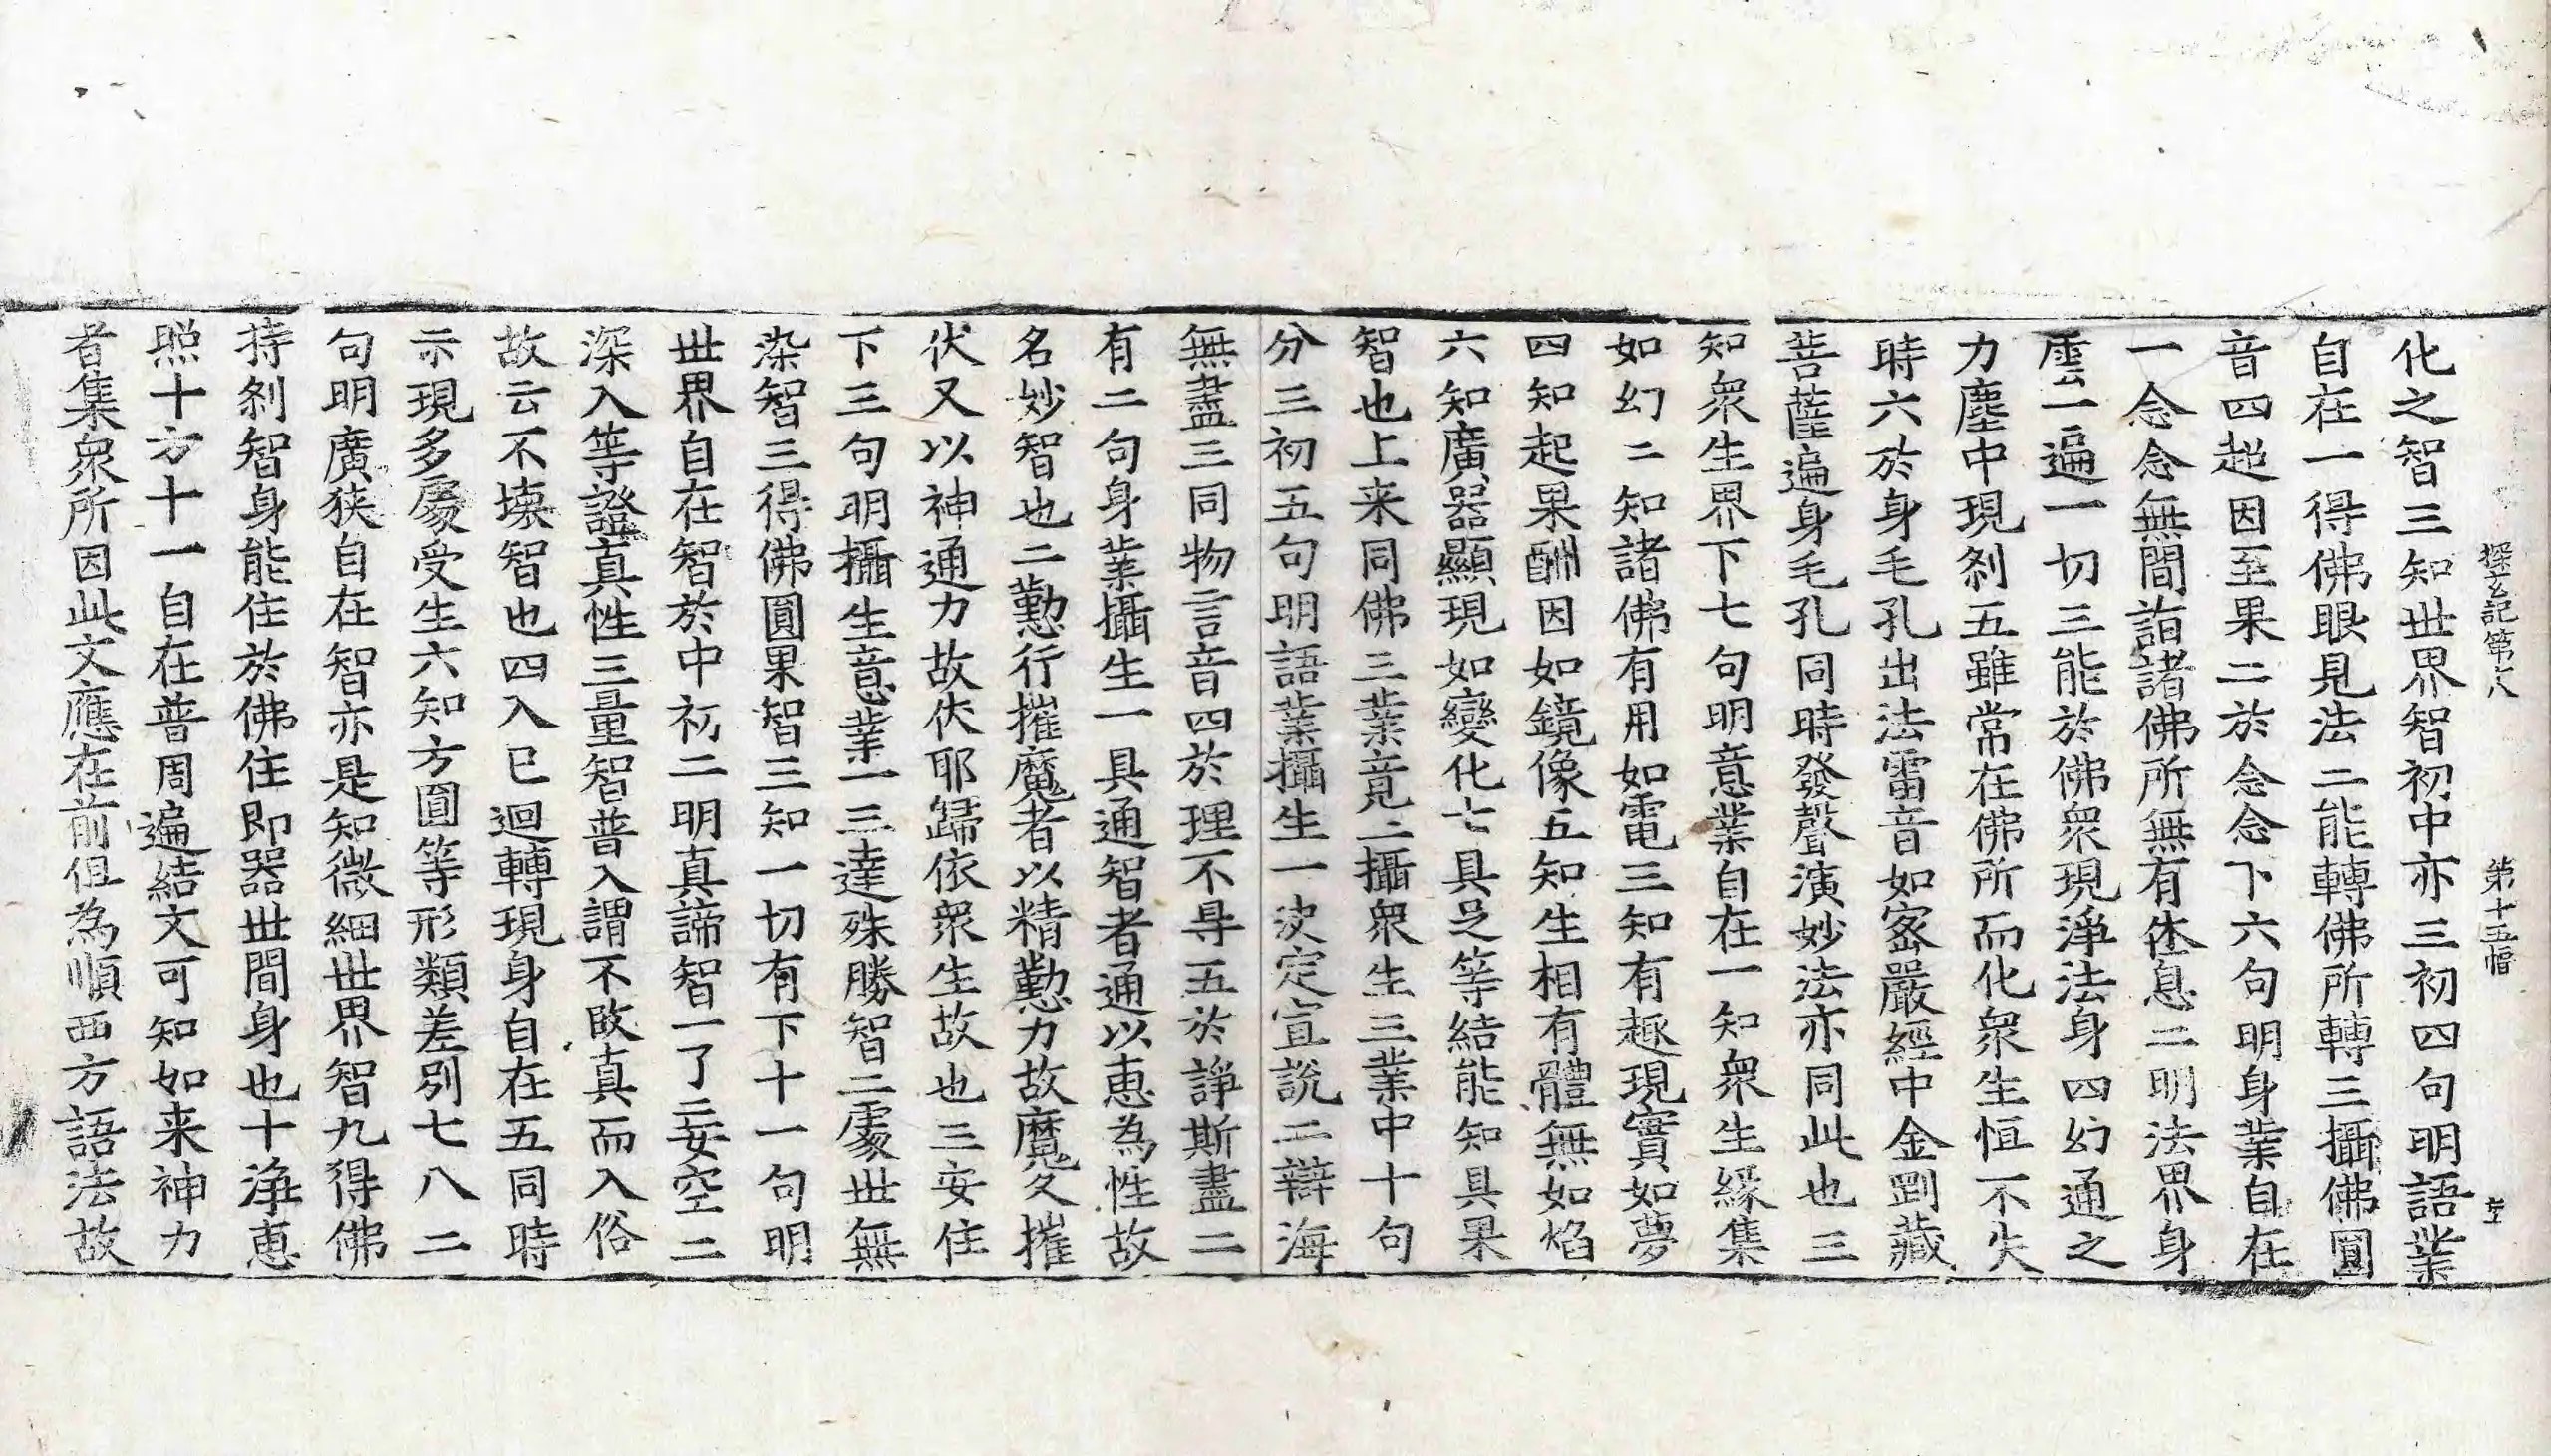 探玄記第十八　第十五幅
化之智三知世界智初中亦三初四句明語業
自在一得佛眼見法二能轉佛所轉三攝佛圓
音四起因至果二於念念下六句明身業自在
一念念無間詣諸佛所無有休息二明法界身
雲一遍一切三能於佛衆現淨法身四幻通之
力塵中現刹五雖常在佛所而化衆生恒不失
時六於身毛孔出法雷音如宻嚴經中金剛藏
菩薩遍身毛孔同時發聲演妙法亦同此也三
知衆生界下七句明意業自在一知衆生緣集
如幻二知諸佛有用如電三知有趣現實如夢
四知起果酬因如鏡像五知生相有體無如焰
六知廣器顯現如變化七具足等結能知具果
智也上来同佛三業竟二攝衆生三業中十句
分三初五句明語業攝生一决定宣説二辯海
無盡三同物言音四於理不㝵五於諍斯盡二
有二句身業攝生一具通智者通以恵為性故
名妙智也二懃行摧魔者以精懃力故魔久摧
伏又以神通力故伏耶歸依衆生故也三安住
下三句明攝生意業一三達殊勝智二處世無
染智三得佛圓果智三知一切有下十一句明
世界自在智於中初二明真諦智一了二妄空二
深入等證真性三量智普入謂不敗真而入俗
故云不壊智也四入已迴轉現身自在五同時
示現多處受生六知方圓等形類差別七八二
句明廣狹自在智亦是知微細世界智九得佛
持刹智身能住於佛住即器世間身也十淨恵
照十方十一自在普周遍結文可知如来神力
者集衆所因此文應在前但為順西方語法故